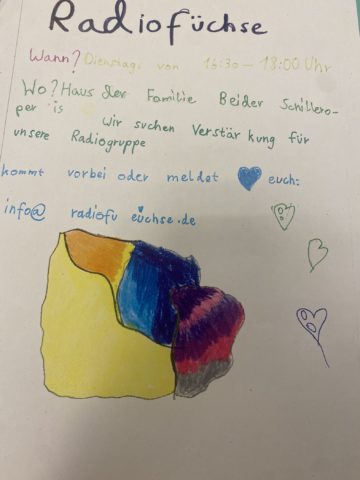 Radiofüchse
Wann? Dienstagi von 16:30 - 18:00 Uhr
Wo? Haus der Familie Beider Schillero-
per is Wir suchen Verstär kung für
unsere Radiogruppe
kommt vorbei oder meldet euch:
info@ radiofu eüchse.de